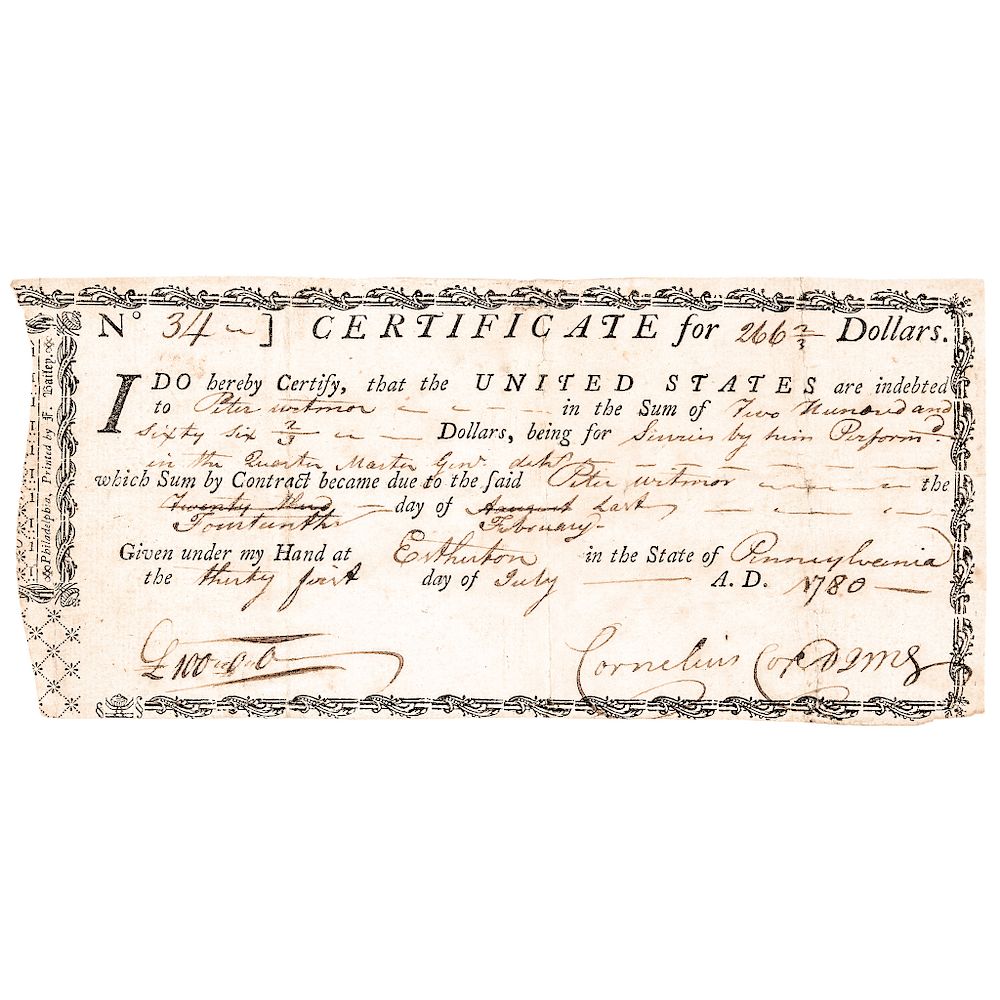 Nº 34 ] CERTIFICATE for 266 2/3 Dollars.
I DO hereby Certify, that the UNITED STATES are indebted
to Peter witmor in the Sum of Two Hundred and
Sixty Six 2/3 Dollars, being for Servies by him Perform
in the Quarter Master Genl. debt
which Sum by Contract became due to the ſaid Peter witmor the
Twenty third day of August Last
Fourteenth February
Given under my Hand at Estherton in the State of Pennsylvania
the thirty first day of July A. D. 1780
£100 0 0 Cornelius Cox D Q M G
Philadelphia, Printed by F. Bailey.